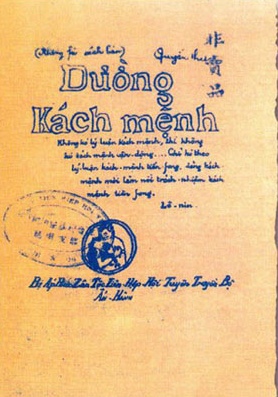 (Không fải sách bán) Quyển thứ
非賣品
Đường
Kách mệnh
Không có lý luận kách mệnh, thì không
có kách mệnh vận-động.... Chỉ có theo
lý-luận kách-mệnh tiền fong, đảng kách
mệnh mới làm nổi trách-nhiệm kách
mệnh tiền fong.
Lê-nin.
Bị Áp Bức Dân Tộc Liên Hợp Hội Tuyên Truyền Bộ
Ấn-Hành